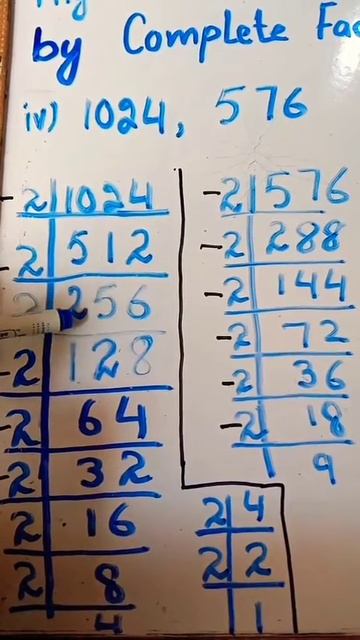 by Complete
iv) 1024, 576
2 1024
2 512
2 256
2 128
2 64
2 32
2 16
2 8
4
2 576
2 288
2 144
2 72
2 36
2 18
1 9
2 4
2 2
1